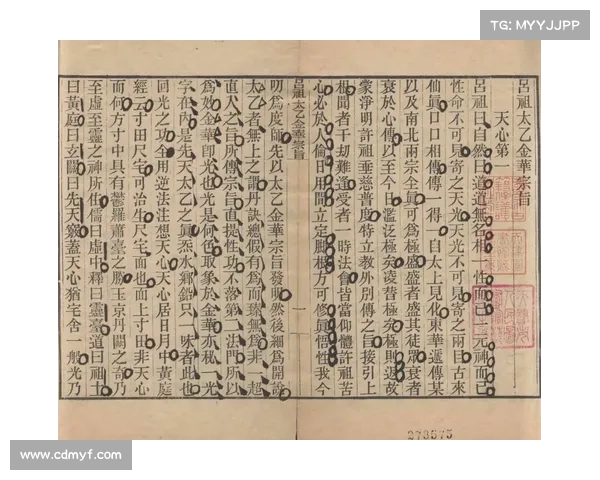 TG: MYYJJPP
呂祖太乙金華宗旨
天心第一
呂祖曰自然曰道道無名相一性而已一元神而已
性命不可見寄之天光天光不可見寄之兩目古來
仙眞口口相傳傳一得一自太上見化東華遞傳某
以及南北兩宗全眞可爲極盛盛者盛其徒眾衰者
衰於心傳以至今日濫泛極矣凌替極矣極則返故
蒙淨明許祖垂慈普度特立教外別傳之旨接引上
根聞者千劫難逢受者一時法會皆當仰體許祖苦
心必於人倫日用間立定腳根方可修眞悟性我今
呂祖太乙金華宗旨 一
叨爲度師先以太乙金華宗旨發明然後細爲開說
太乙者無上之謂丹訣總假有爲而臻無爲非一超
直入之旨所傳宗旨直提性功不落第二法門所以
爲妙金華卽光也光是何色取象於金華亦秘一光
字在內是先天太乙之眞炁水鄉鉛只一味者此也
回光之功全用逆法注想天心天心居日月中黃庭
經云寸田尺宅可治生尺宅面也面上寸田非天心
而何方寸中具有鬱羅蕭臺之勝玉京丹闕之奇乃
至虛至靈之神所住儒曰虛中釋曰靈臺道曰祖土
曰黃庭曰玄關曰先天竅蓋天心猶宅舍一般光乃
273575
www.cdmyf.com